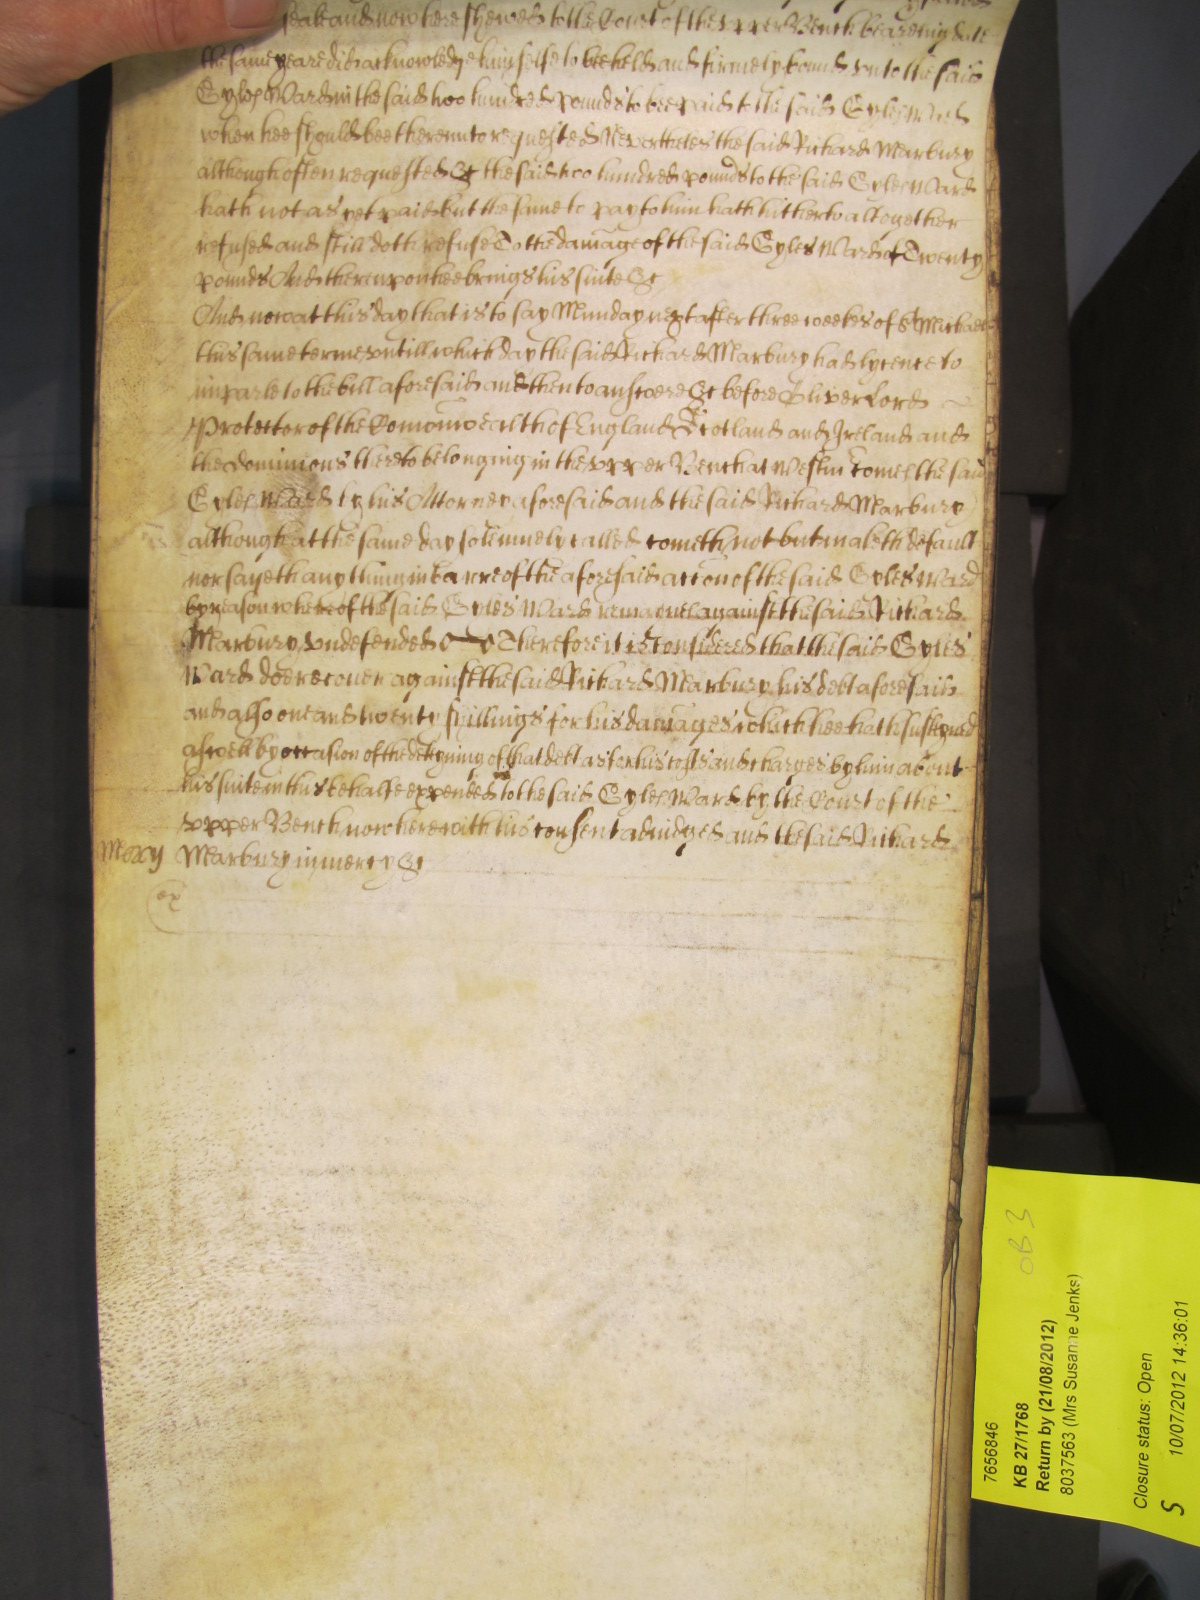 seale and now here shewes to the Court of the upper Bench beareing date
the same yeare did acknowledge himselfe to bee held and firmely bound unto the said
Gyles Ward in the said two hundred pounds to bee paid to the said Gyles Ward
when hee should bee thereunto requested Neverthelesse the said Richard Marbury
although often requested &c the said two hundred pounds to the said Gyles Ward
hath not as yet paid but the same to pay to him hath hitherto altogether
refused and still doth refuse To the damage of the said Gyles Ward of Twenty
pounds And thereupon hee brings his suite &c
And now at this day that is to say Munday next after three weekes of St Michael
this same terme untill which day the said Richard Marbury had lycence to
imparle to the bill aforesaid and then to answere &c before Oliver Lord
Protector of the Comonwealth of England Scotland and Ireland and
the dominions thereto belonging in the upper Bench at Westm comes the said
Gyles Ward by his Attorney aforesaid and the said Richard Marbury
although at the same day solemnely called cometh not but maketh default
nor sayeth any thing in barre of the aforesaid accon of the said Gyles Ward
by reason whereof the said Gyles Ward remaynes against the said Richard
Marbury undefended Therefore it is considered that the said Gyles
Ward doe recover against the said Richard Marbury his debt aforesaid
and also one and twenty shillings for his damages which hee hath susteyned
aswell by occasion of the deteyning of that debt as for his costs and charges by him about
his suite in this behalfe expended to the said Gyles Ward by the Court of the
upper Bench now here with his consent adiudged and the said Richard
Mercy Marbury in mercy &c
ex
OB 3
7656846
KB 27/1768
Return by (21/08/2012)
8037563 (Mrs Susanne Jenks)
Closure status: Open
S 10/07/2012 14:36:01